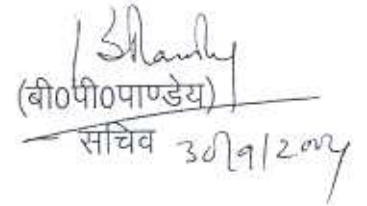 (बी0पी0पाण्डेय)
सचिव 30/9/2004